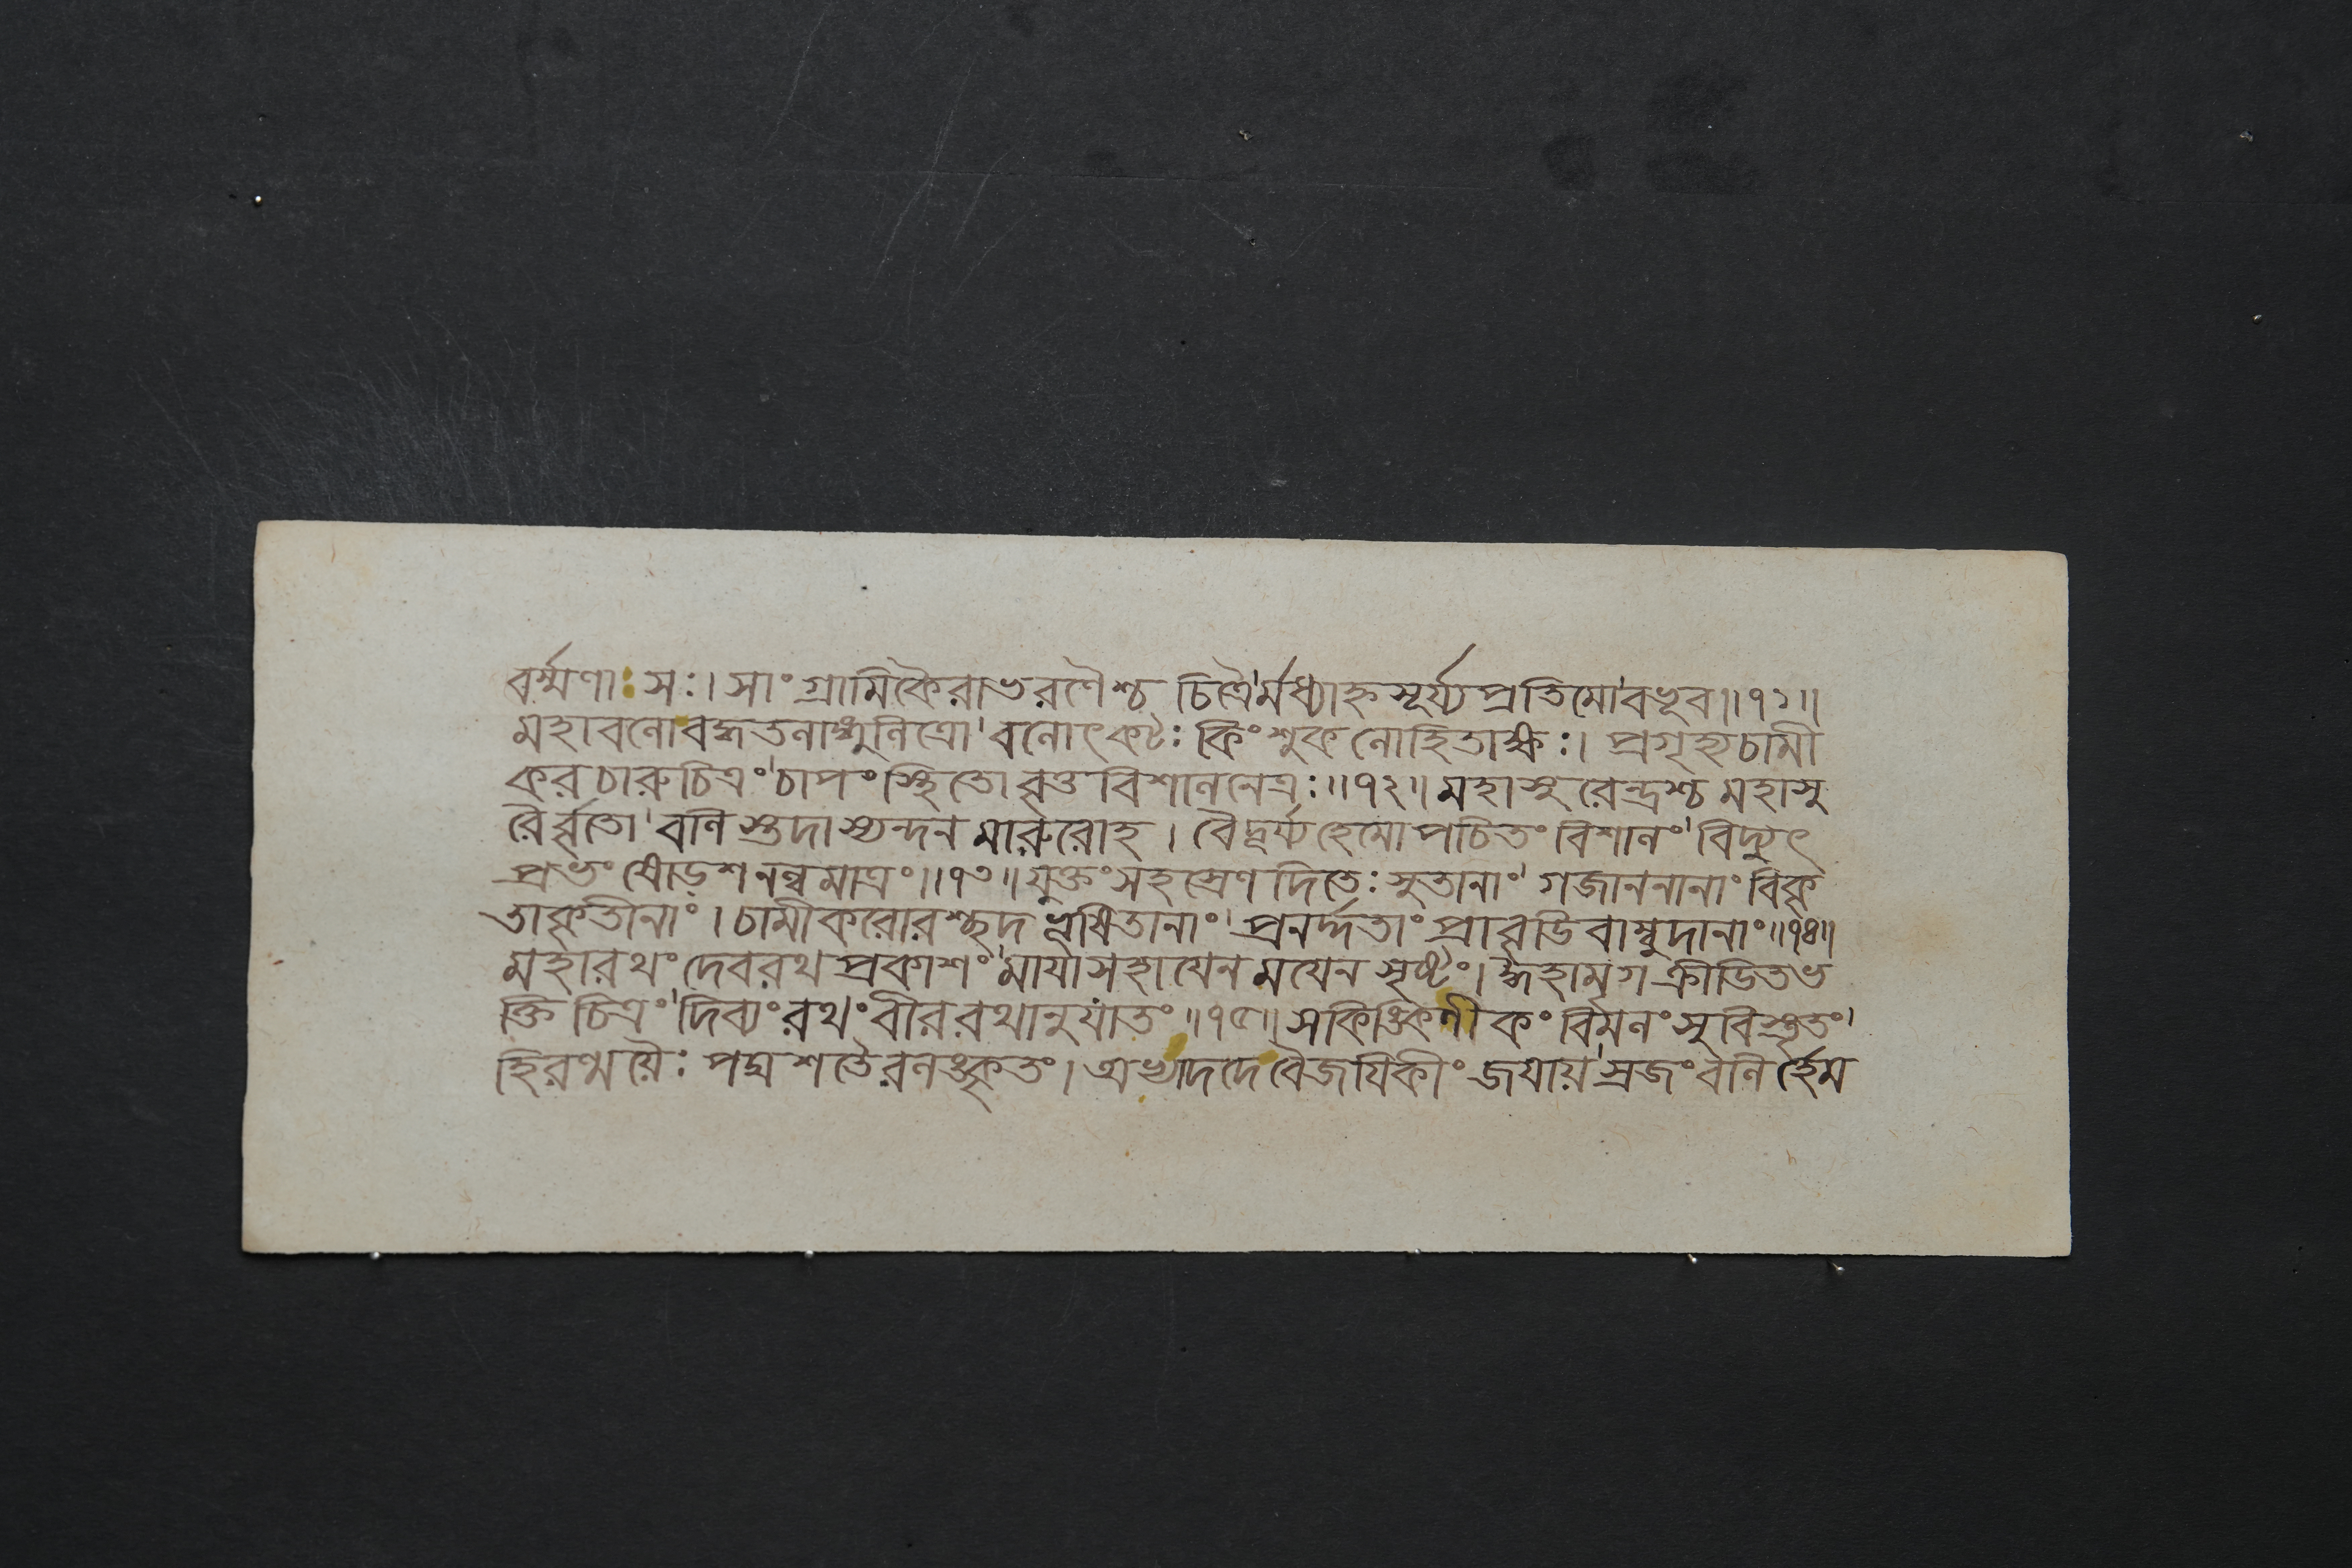 বর্ম্মণা: স:। সাংগ্রামিকৈরাভরণৈশ্চ চিত্রৈ'র্মধ্যাহ্ন সূর্য্য প্রতিমো'বভূব॥১১॥
মহাবলো বদ্ধতলাঙ্গুলিত্রো'বলোৎকট: কিংশুক লোহিতাক্ষ:। প্রগৃহ্য চামী
কর চারুচিত্রং'চাপং স্থিতো বৃত্ত বিশাল নেত্র:॥১২॥ মহাসুরেন্দ্রশ্চ মহাসু
রৈর্ব্বৃতো'বলি স্তদা স্যন্দন মারুরোহ। বৈদূর্য্য হেমোপচিতং বিশালং'বিদ্যুৎ
প্রভং ষোড়শ নল্ব মাত্রং॥১৩॥ যুক্তং সহস্রেণ দিতে: সুতানাং'গজাননানাং বিকৃ
তাকৃতীনাং। চামীকরোরশ্ছদ ভূষিতানাং'প্রনর্দ্দতাং প্রাবৃডিবাম্বুদানাং॥১৪॥
মহারথং দেবরথ প্রকাশং'মাযাসহাযেন মযেন সৃষ্টং। ঈহামৃগ ক্রীডিত ভ
ক্তি চিত্রং'দিব্যং রথং বীর রথানুযাতং॥১৫॥ সকিঙ্কিণীকং বিমলং সুবিস্তৃতং'
হিরণ্ময়ৈ: পদ্ম শতৈরলঙ্কৃতং। অথাদদে বৈজযিকীং জযায়'স্রজং বলির্হেম